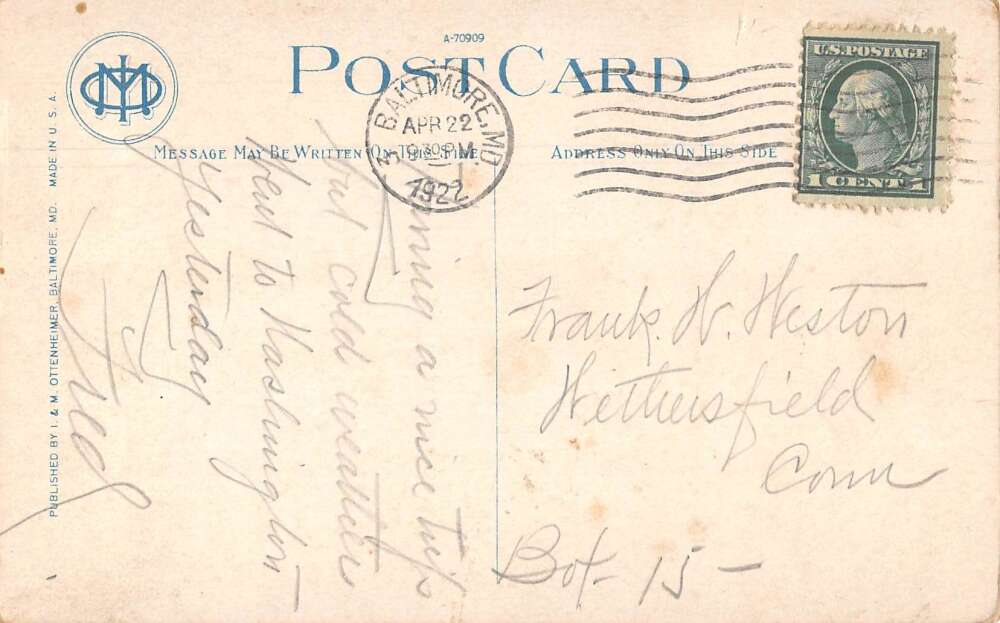 A-70909
POST CARD
MESSAGE MAY BE WRITTEN ON THIS SIDE
ADDRESS ONLY ON THIS SIDE
BALTIMORE, MD
APR 22
930 PM
1922
U.S. POSTAGE
1 CENT 1
PUBLISHED BY I. & M. OTTENHEIMER, BALTIMORE, MD. MADE IN U.S.A.
a nice trip
but cold weather
went to Washington
Yesterday
Fred
Frank. W. Weston
Wethersfield
Conn
Box 15